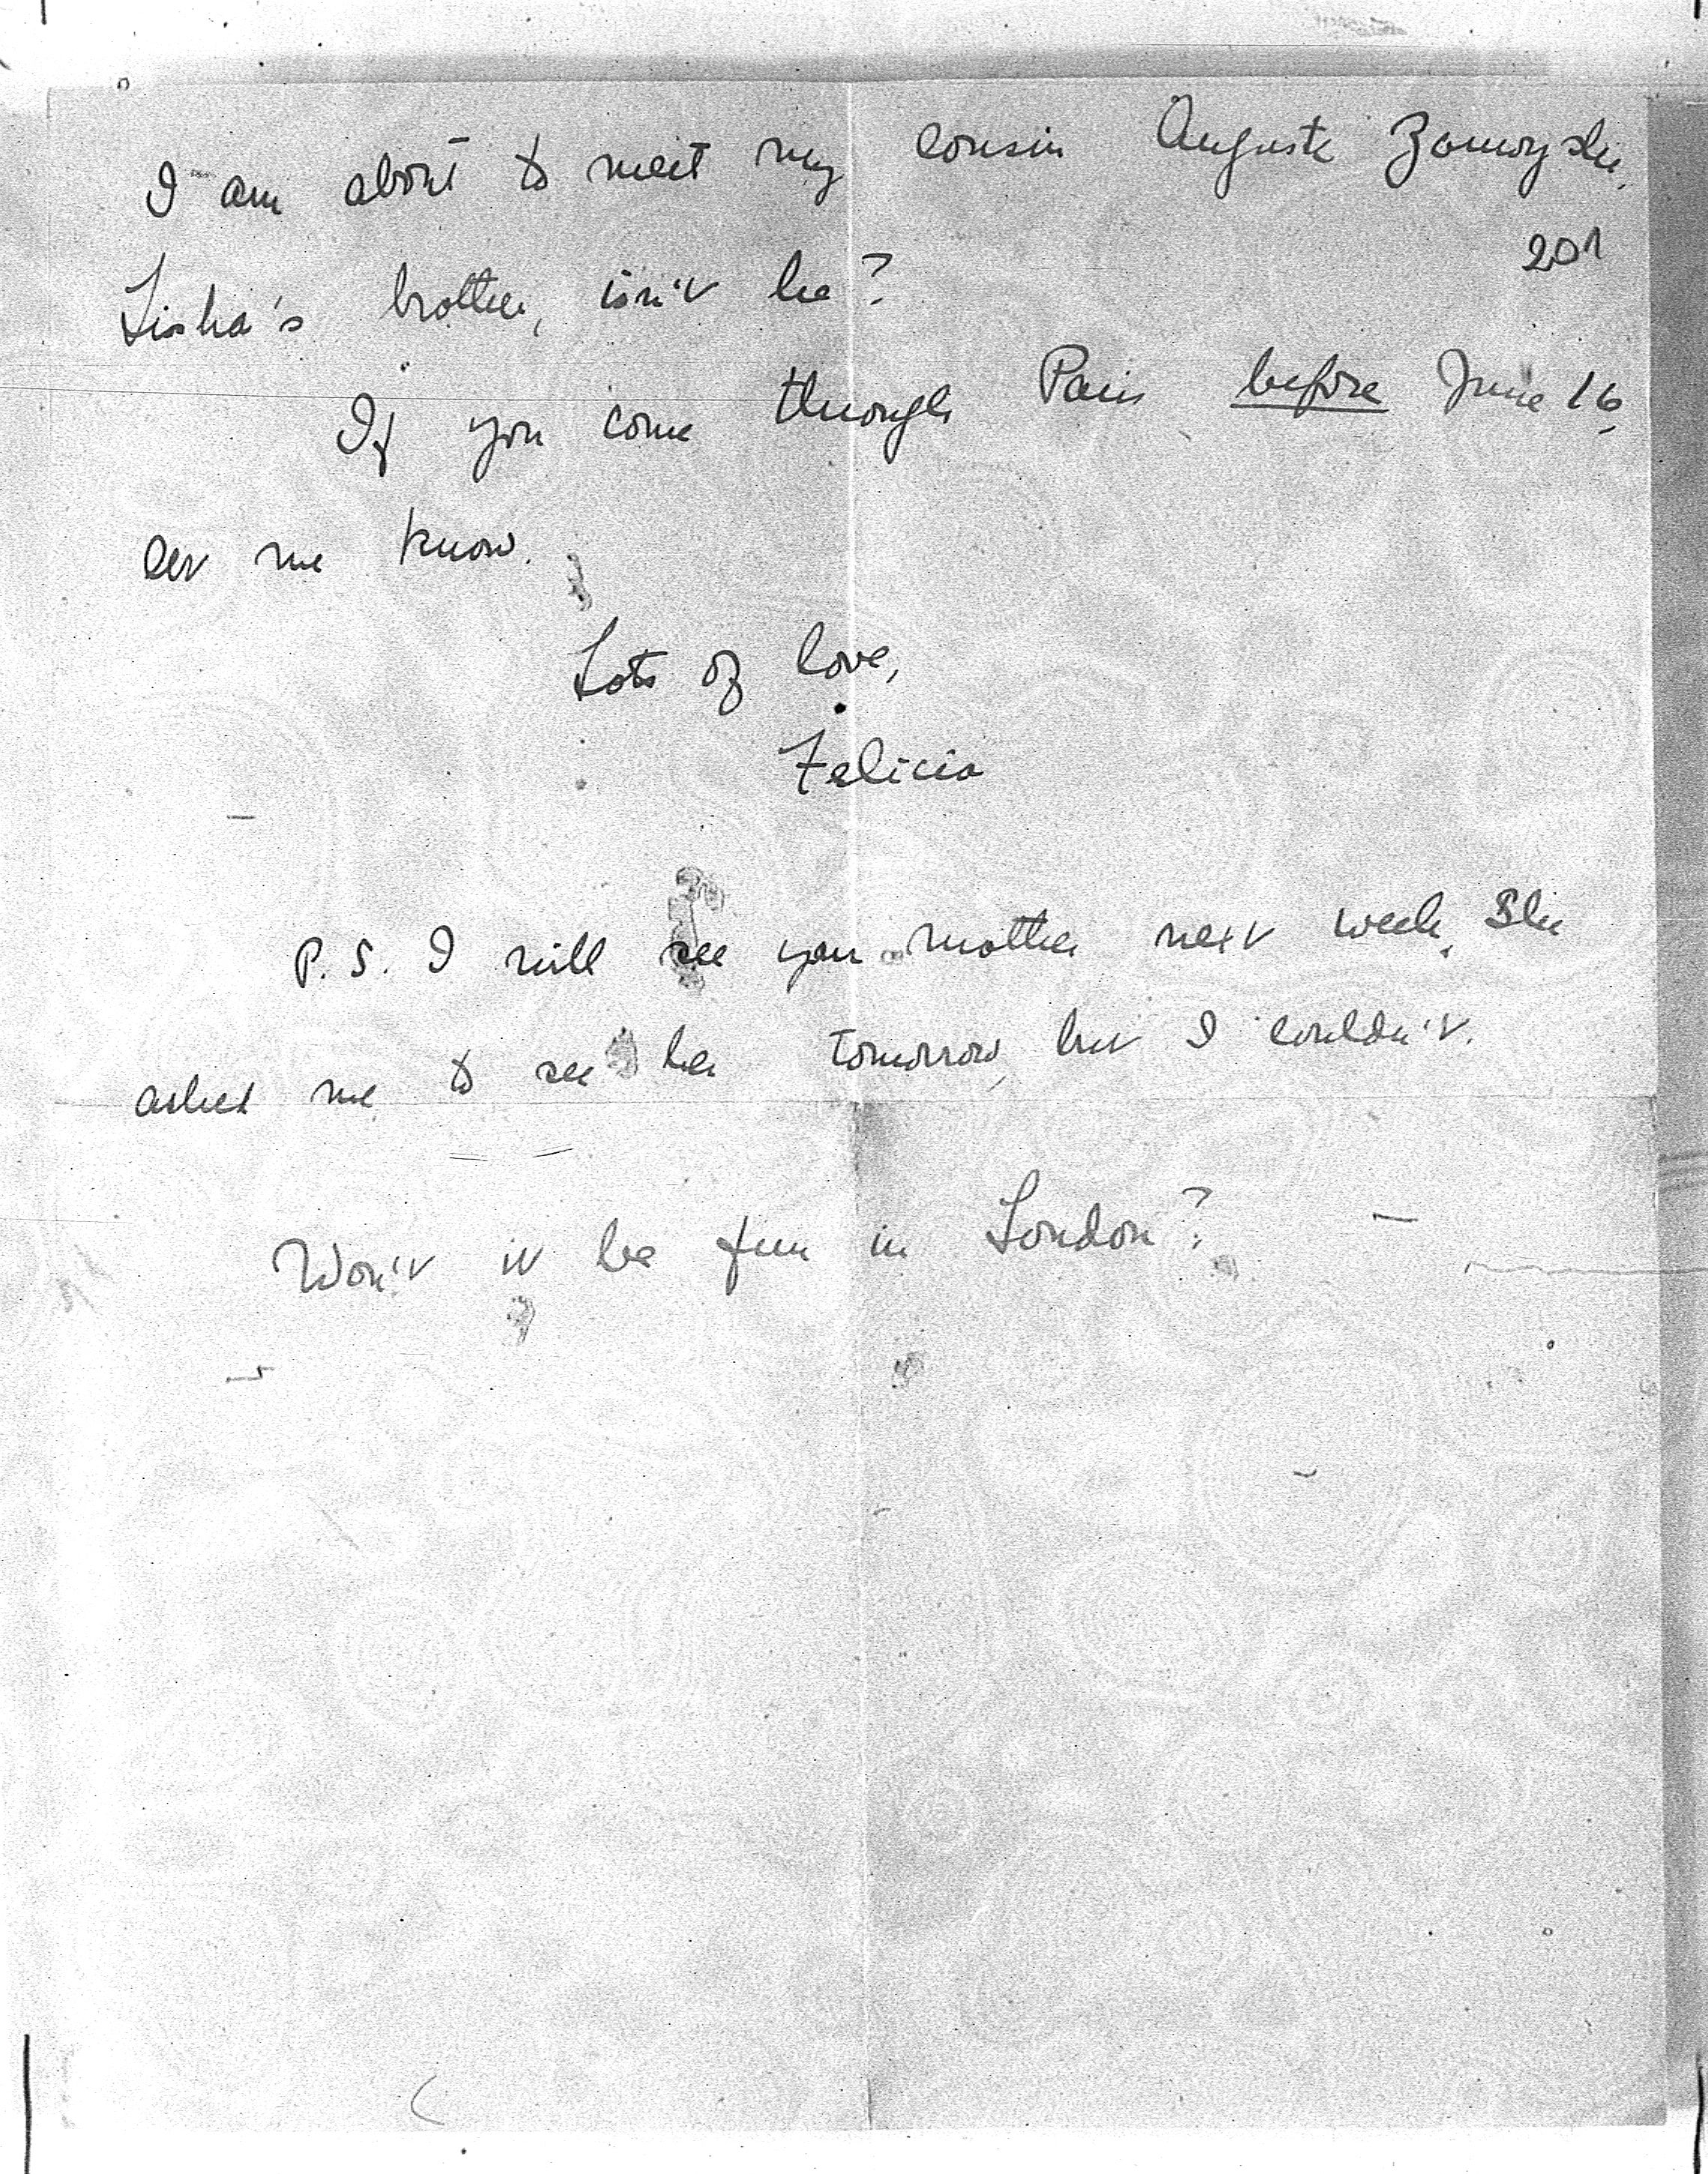 I am about to meet my cousin Auguste Zamoyski,
201
Lisha's brother, isn't he?
If you come through Paris before June 16,
let me know.
Lots of love,
Felicia
P.S. I will see your mother next week. She
asked me to see her tomorrow, but I couldn't.
Won't it be fun in London?